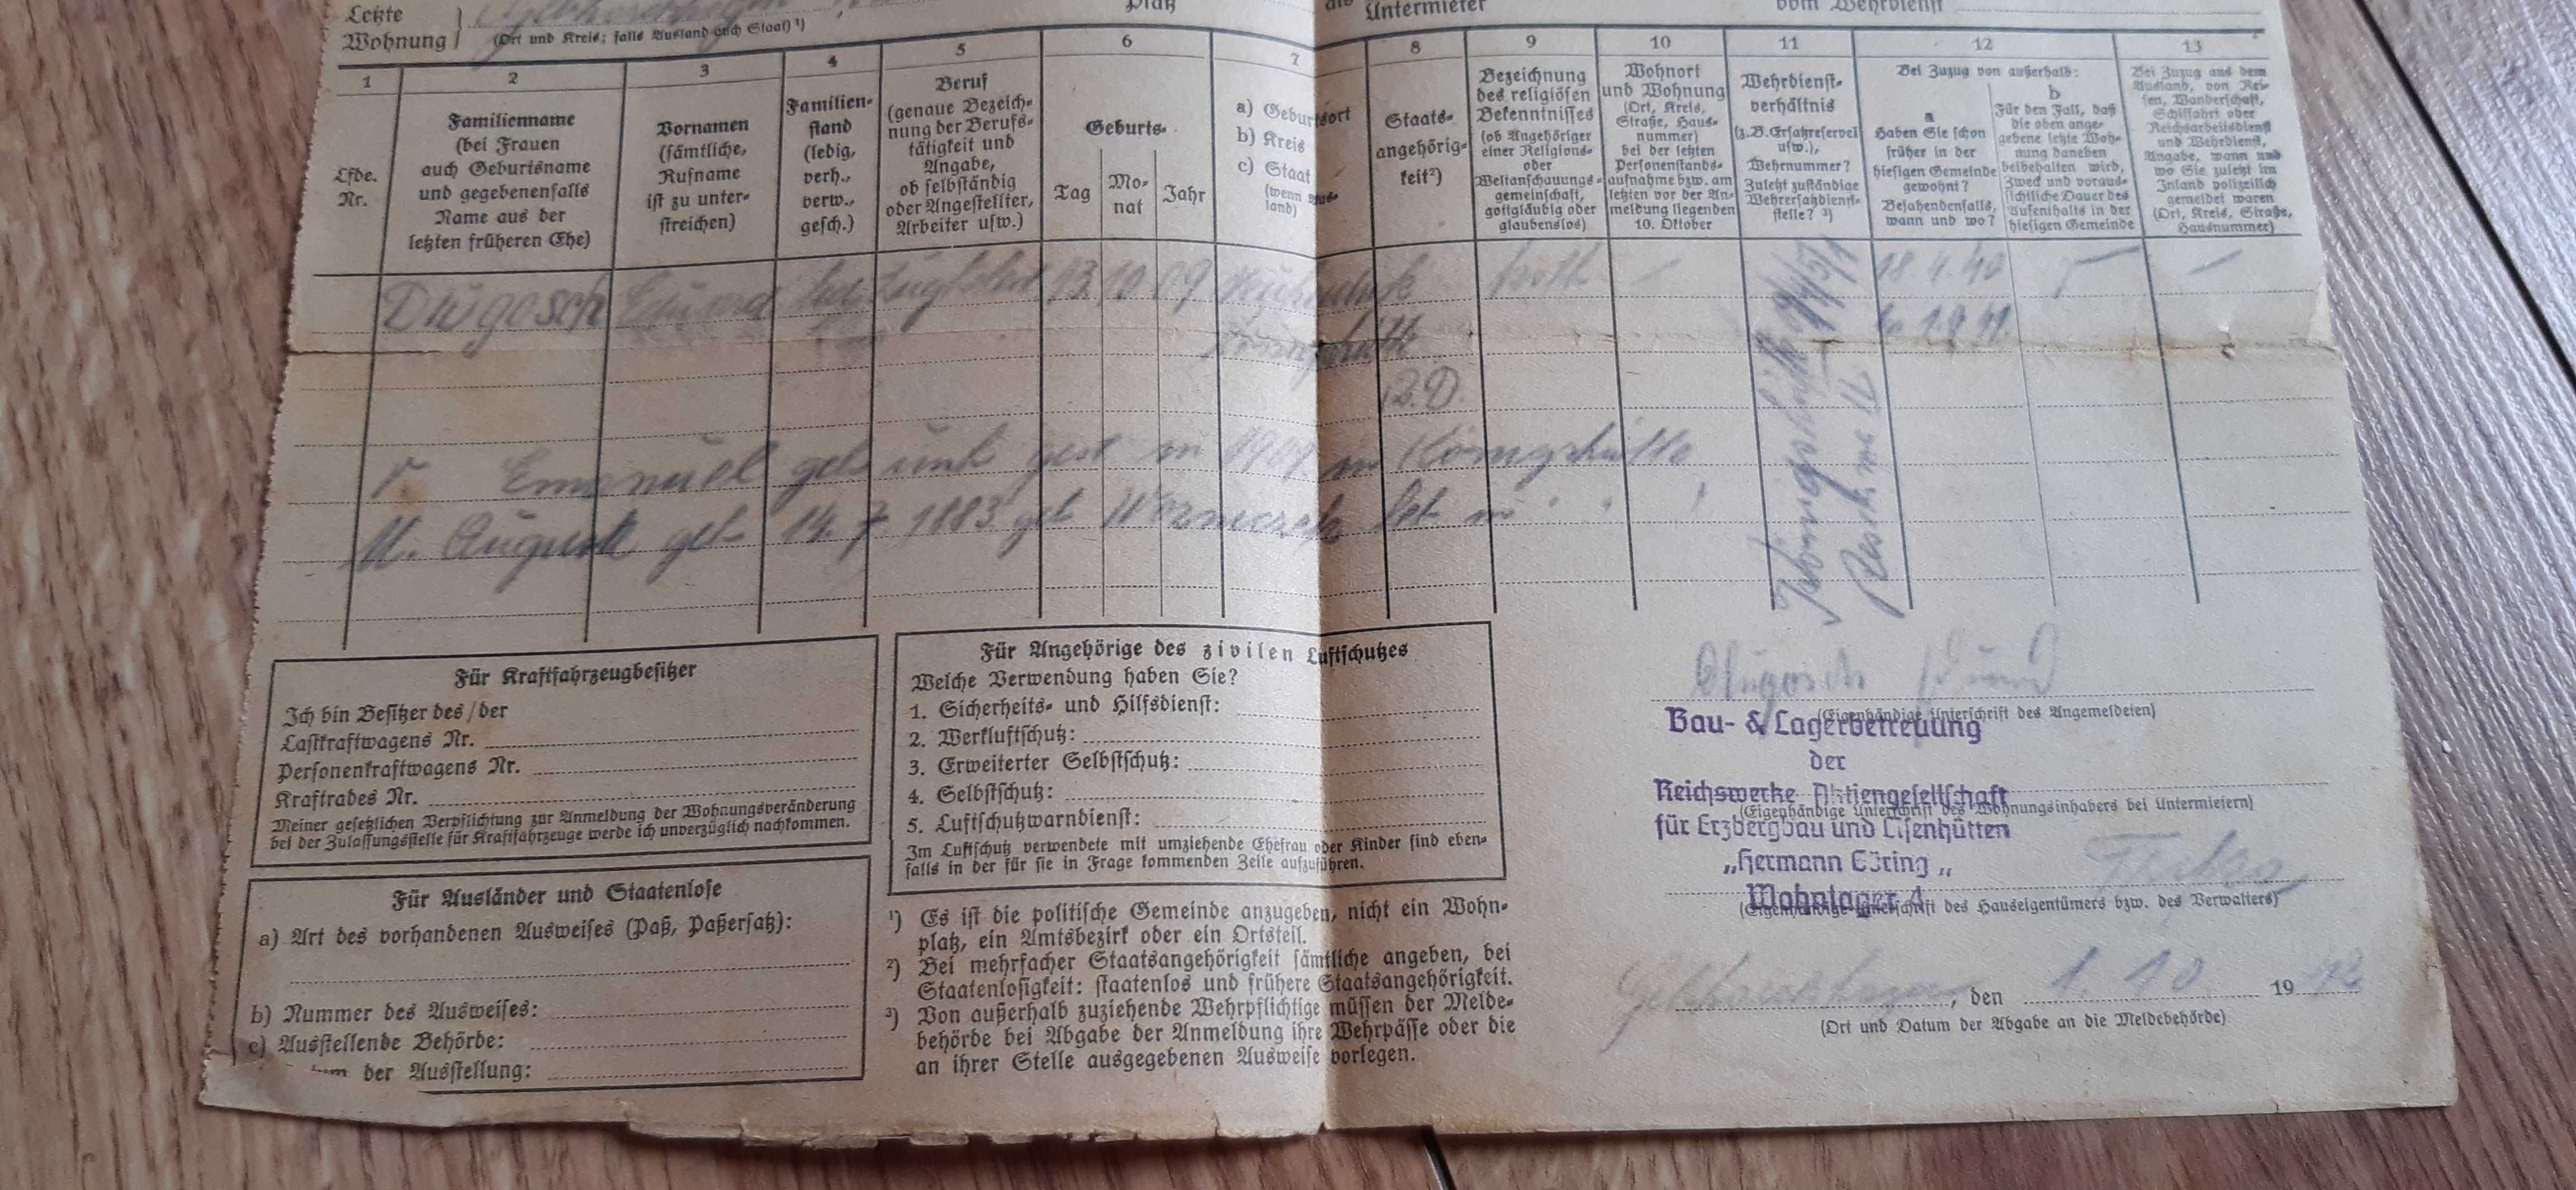 Letzte
Wohnung
(Ort und Kreis; falls Ausland auch Staat) ¹)
Platz
Untermieter
vom Wehrdienst
1
Lfde.
Nr.
2
Familienname
(bei Frauen
auch Geburtsname
und gegebenenfalls
Name aus der
letzten früheren Ehe)
3
Vornamen
(sämtliche,
Rufname
ist zu unter-
streichen)
4
Familien-
stand
(ledig,
verh.,
verw.,
gesch.)
5
Beruf
(genaue Bezeich-
nung der Berufs-
tätigkeit und
Angabe,
ob selbständig
oder Angestellter,
Arbeiter usw.)
6
Geburts-
Tag
Mo-
nat
Jahr
7
a) Geburtsort
b) Kreis
c) Staat
(wenn Aus-
land)
8
Staats-
angehörig-
keit²)
9
Bezeichnung
des religiösen
Bekenntnisses
(ob Angehöriger
einer Religions-
oder
Weltanschauungs-
gemeinschaft,
gottgläubig oder
glaubenslos)
10
Wohnort
und Wohnung
(Ort, Kreis,
Straße, Haus-
nummer)
bei der letzten
Personenstands-
aufnahme bzw. am
letzten vor der An-
meldung liegenden
10. Oktober
11
Wehrdienst-
verhältnis
(z.B. Ersatzreserve I
usw.),
Wehrnummer?
Zuletzt zuständige
Wehrersatzdienst-
stelle? ³)
12
Bei Zuzug von außerhalb:
a
Haben Sie schon
früher in der
hiesigen Gemeinde
gewohnt?
Bejahendenfalls,
wann und wo?
b
Für den Fall, daß
die oben ange-
gebene letzte Woh-
nung daneben
beibehalten wird,
Zweck und voraus-
sichtliche Dauer des
Aufenthalts in der
hiesigen Gemeinde
13
Bei Zuzug aus dem
Ausland, von Rei-
sen, Wanderschaft,
Schiffahrt oder
Reichsarbeitsdienst
und Wehrdienst,
Angabe, wann und
wo Sie zuletzt im
Inland polizeilich
gemeldet waren
(Ort, Kreis, Straße,
Hausnummer)
Dlugosch 13 10 09 18.4.40
1.9.41
D.
Königshütte
V Emanuel geb und gest in 1909 in Königshütte
M. August geb 14. 7 1883 geb in
Für Kraftfahrzeugbesitzer
Ich bin Besitzer des/der
Lastkraftwagens Nr.
Personenkraftwagens Nr.
Kraftrades Nr.
Meiner gesetzlichen Verpflichtung zur Anmeldung der Wohnungsveränderung
bei der Zulassungsstelle für Kraftfahrzeuge werde ich unverzüglich nachkommen.
Für Ausländer und Staatenlose
a) Art des vorhandenen Ausweises (Paß, Paßersatz):
b) Nummer des Ausweises:
c) Ausstellende Behörde:
der Ausstellung:
Für Angehörige des zivilen Luftschutzes
Welche Verwendung haben Sie?
1. Sicherheits- und Hilfsdienst:
2. Werkluftschutz:
3. Erweiterter Selbstschutz:
4. Selbstschutz:
5. Luftschutzwarndienst:
Im Luftschutz verwendete mit umziehende Ehefrau oder Kinder sind eben-
falls in der für sie in Frage kommenden Zeile aufzuführen.
¹) Es ist die politische Gemeinde anzugeben, nicht ein Wohn-
platz, ein Amtsbezirk oder ein Ortsteil.
²) Bei mehrfacher Staatsangehörigkeit sämtliche angeben, bei
Staatenlosigkeit: staatenlos und frühere Staatsangehörigkeit.
³) Von außerhalb zuziehende Wehrpflichtige müssen der Melde-
behörde bei Abgabe der Anmeldung ihre Wehrpässe oder die
an ihrer Stelle ausgegebenen Ausweise vorlegen.
Dlugosch
(Eigenhändige Unterschrift des Angemeldeten)
Bau- & Lagerbetreuung
der
Reichswerke Aktiengesellschaft
(Eigenhändige Unterschrift des Wohnungsinhabers bei Untermietern)
für Erzbergbau und Eisenhütten
„Hermann Göring„
Wohnlager 4
(Eigenhändige Unterschrift des Hauseigentümers bzw. des Verwalters)
, den 1. 10 19 42
(Ort und Datum der Abgabe an die Meldebehörde)